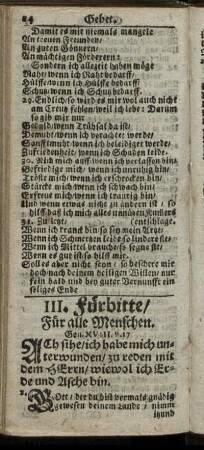 24 Gebet.
Damit es mir niemals mangele
An treuen Freunden/
An guten Gönnern/
An mächtigen Förderern:
Sondern ich allezeit haben möge
Raht/ wenn ich Raht bedarff/
Hülffe/ wenn ich Hülffe bedarff
Schutz/ wenn ich Schutz bedarff.
29. Endlich/ so wird es mir wol auch nicht
am Creutz fehlen/ weil ich lebe: Darum
so gib mir nur
Gedult/ wenn Trübsal da ist;
Demuht/ wenn ich verachtet werde/
Sanfftmuht/ wenn ich beleidiget werde/
Zufriedenheit/ wenn ich Schaden leide.
30. Nich mich auff/ wenn ich verlassen bin/
Befriedige mich/ wenn ich unruhig bin/
Tröste mich/ wenn ich erschrocken bin/
Stärcke mich/ wenn ich schwach bin/
Erfreue mich/ wenn ich trautig bin/
Und wenn etwas nicht zu ändern ist/ so
hilff/ daß ich mich alles unnützen
31. Zuletzt/ (entschlage.
Wenn ich kranck bin/ so sey mein Artzt/
Wenn ich Schmertzen leide/ so lindere sie/
Wenn ich Mittel brauche/ so segne sie/
Wenn es gut ist/ so hilff mir.
Soll es aber nicht seyn/ so beschere mir
doch nach deinem heiligen Willen/ nur
fein bald und bey guter Vernunfft ein
seliges Ende
III. Fürbitte/
Für alle Menschen.
Gen. XVIII. v. 27
ACh sihe/ ich habe mich un-
terwunden/ zu reden mit
dem HErrn/ wiewol ich Er-
de und Asche bin.
2. GOtt/ der du bist vormals gnädig
gewesen deinem Lande/ nimm
itzund